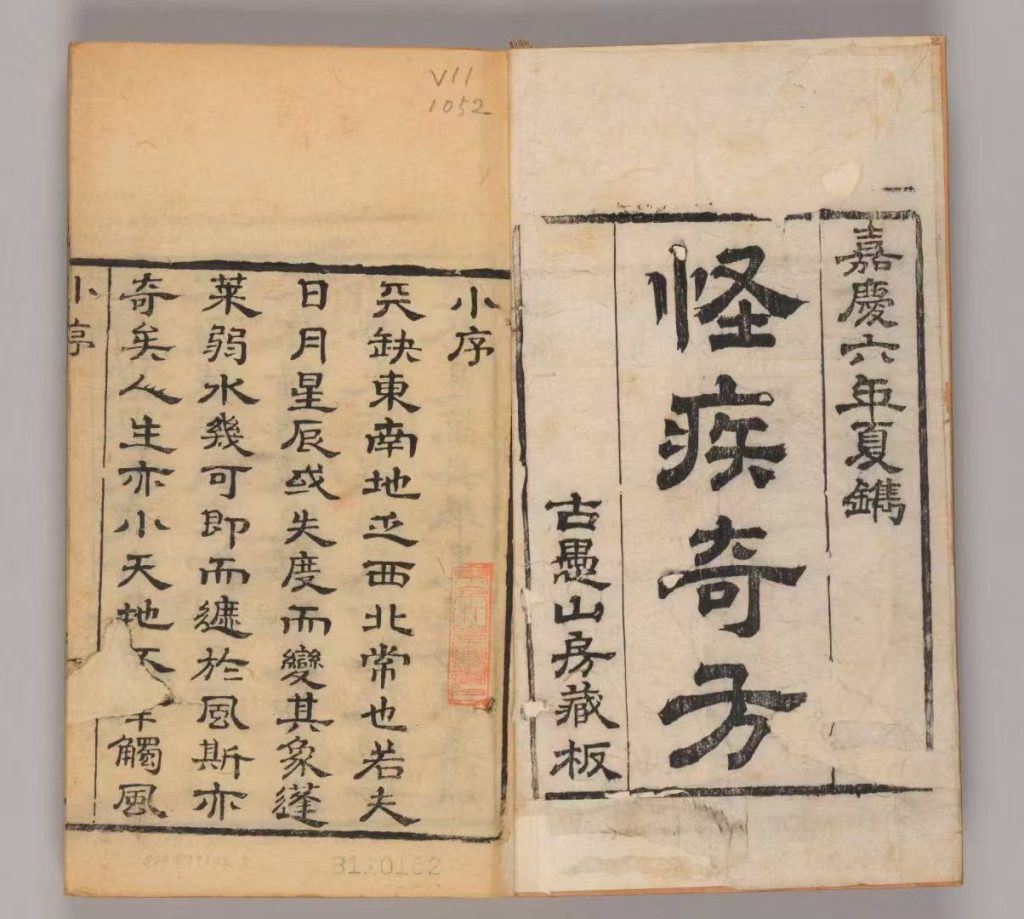 嘉慶六年夏鐫
怪疾奇方
古愚山房藏板
V11
1052
小序
天缺東南地西北常也若夫
日月星辰或失度而變其象蓬
萊弱水幾可即而於風斯亦
奇矣人生亦小天地不觸風
小序
3110152